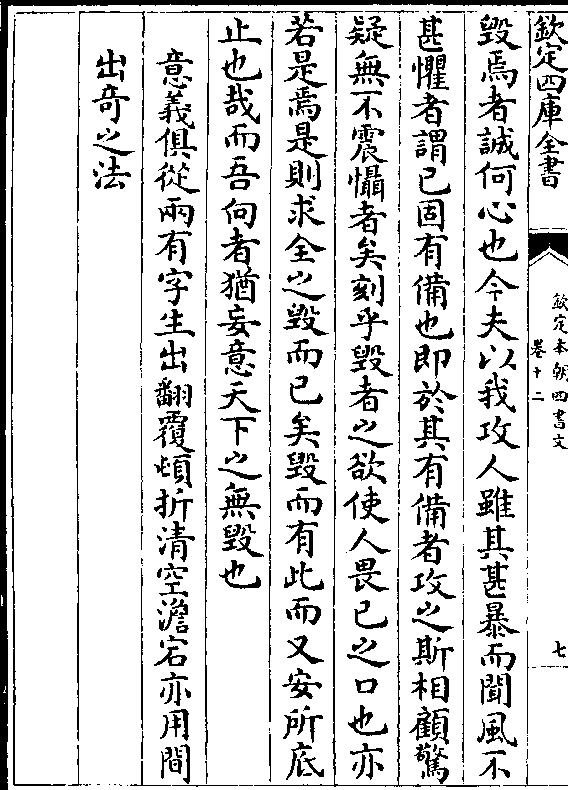 欽定四庫全書
欽定本朝四書文
卷十二
七
毀焉者誠何心也今夫以我攻人雖其甚暴而聞風不
甚懼者謂已固有備也即於其有備者攻之斯相顧驚
疑無不震懾者矣刻乎毀者之欲使人畏已之口也亦
若是焉是則求全之毀而已矣毀而有此而又安所底
止也哉而吾向者猶妄意天下之無毀也
意義俱從兩有字生出翻覆頓折清空澹宕亦用間
出奇之法